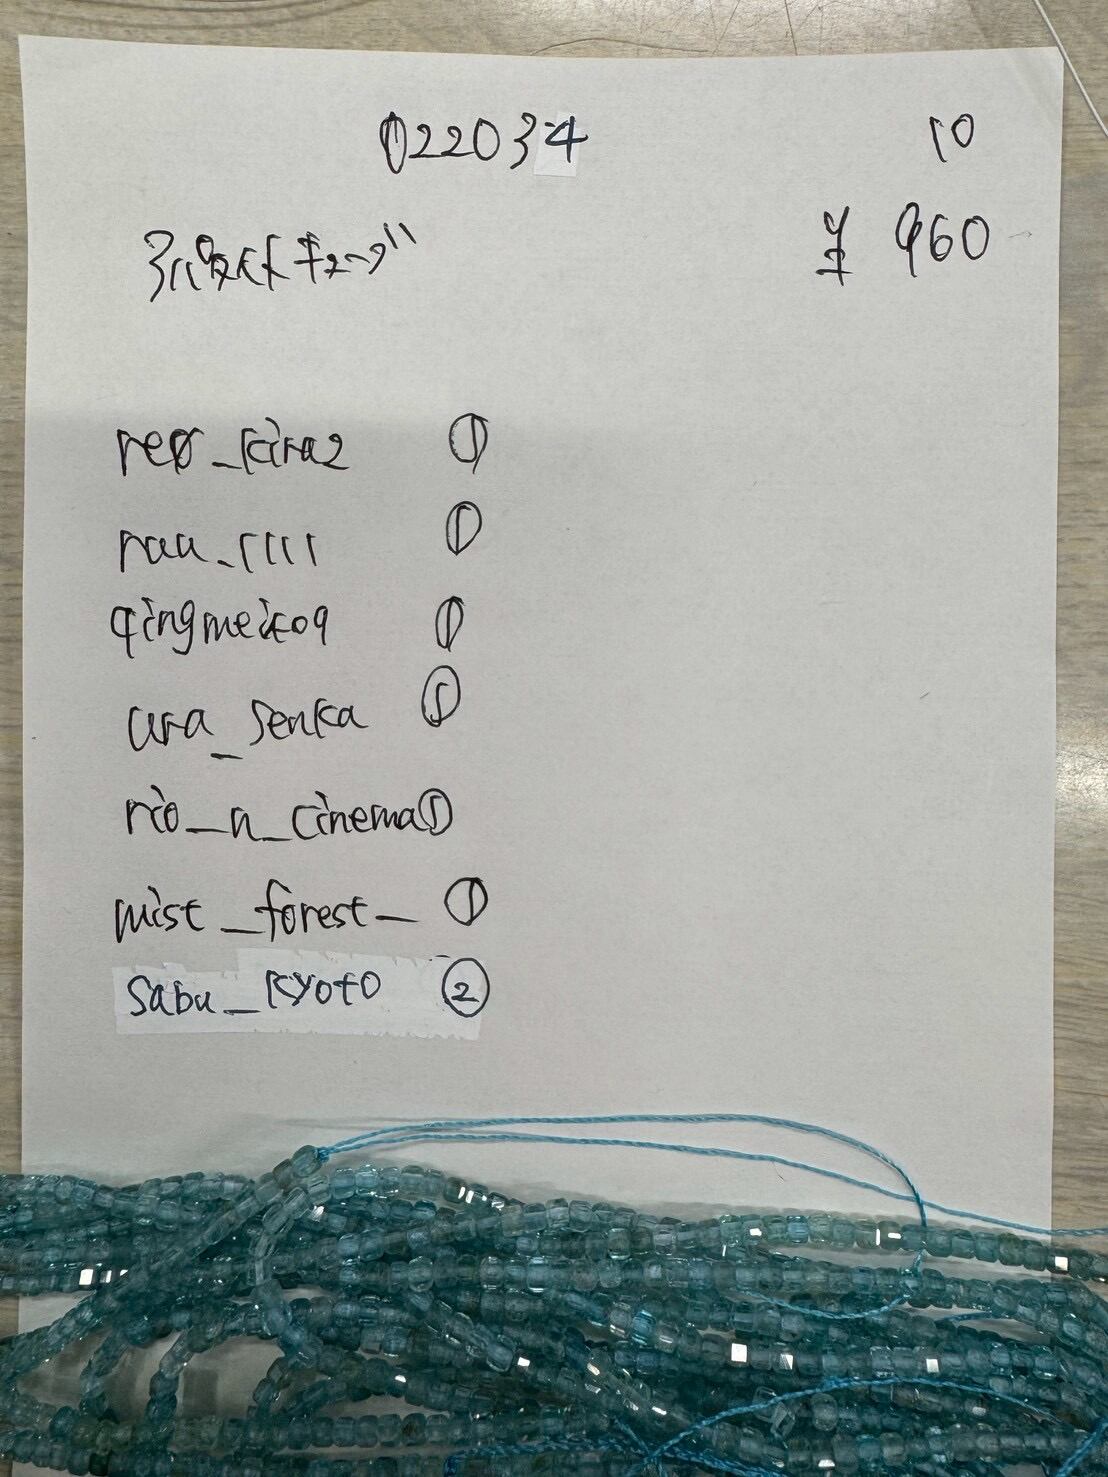 022034 10
¥ 960
reo_kira2 ①
rau_1111 ①
qingmeiko9 ①
ura_senka ①
rio_n_cinema ①
mist_forest_ ①
sabu_kyoto ②